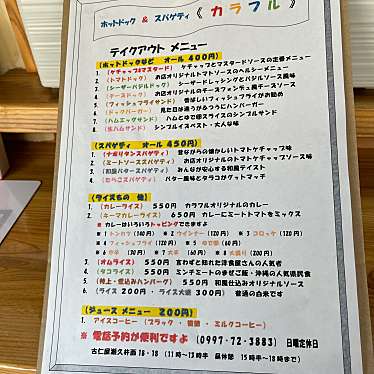 ホットドック & スパゲティ 《 カラフル 》
テイクアウト メニュー
(ホットドックなど オール 400円)
1 (ケチャップ&マスタード) ケチャップとマスタードソースの定番メニュー
2 (トマトソース) お店オリジナルトマトソースのヘルシーメニュー
3 (シーザーバヂルドック) シーザードレッシングとバジルソース風味
4 (チーズドック) お店オリジナルのチーズフォンデュ風チーズソース
5 (フィッシュフライサンド) 香ばしいフィッシュフライがお勧め
6 (ドックバーガー) 見た目は違がうるつりにハンバーガー
7 (ハムエッグサンド) ハムとゆで卵スライスのシンプルサンド
8 (生ハムサンド) シンプルイズベスト・大人な味
(スパゲティ オール 450円)
1 (ナポリタンスパゲティ) 昔ながらの懐かしいトマトケチャップ味
2 (ミートソーススパゲティ) お店オリジナルのトマトケチャップソース味
3 (和風バタースパゲティ) みんなが安心する和風テイスト
4 (たらこスパゲティ) バター風味とタラコがグットマッチ
(ライスもの 他)
1 (カレーライス) 550円 カラフルオリジナルのカレー
2 (キーマカレーライス) 650円 カレーにミートトマトをミックス
※ カレーはいろいろトッピングできますよ
※1 トンカツ(160円) ※2 ウインナー(120円) ※3 コロッケ(120円)
※4 フィッシュフライ(120円) ※5 ゆで卵(60円)
※7 大辛
3 (オムライス) 550円 言わずと知れた洋食屋さんの人気者
4 (タコライス) 550円 ミンチミートのまぜご飯・沖縄の人気県民食
5 (特上・煮込みハンバーグ) 550円 和風仕込みオリジナルソース
6 (ライス 200円・ライス大盛 300円) 普通の白米です
(ジュース メニュー 200円)
1 アイスコーヒー (ブラック・微糖・ミルクコーヒー)
※ 電話予約が便利ですよ (0997-72-3883) 日曜定休日
古仁屋瀬久井西18-18 (11時〜13時半 昼休憩 15時半〜18時まで)